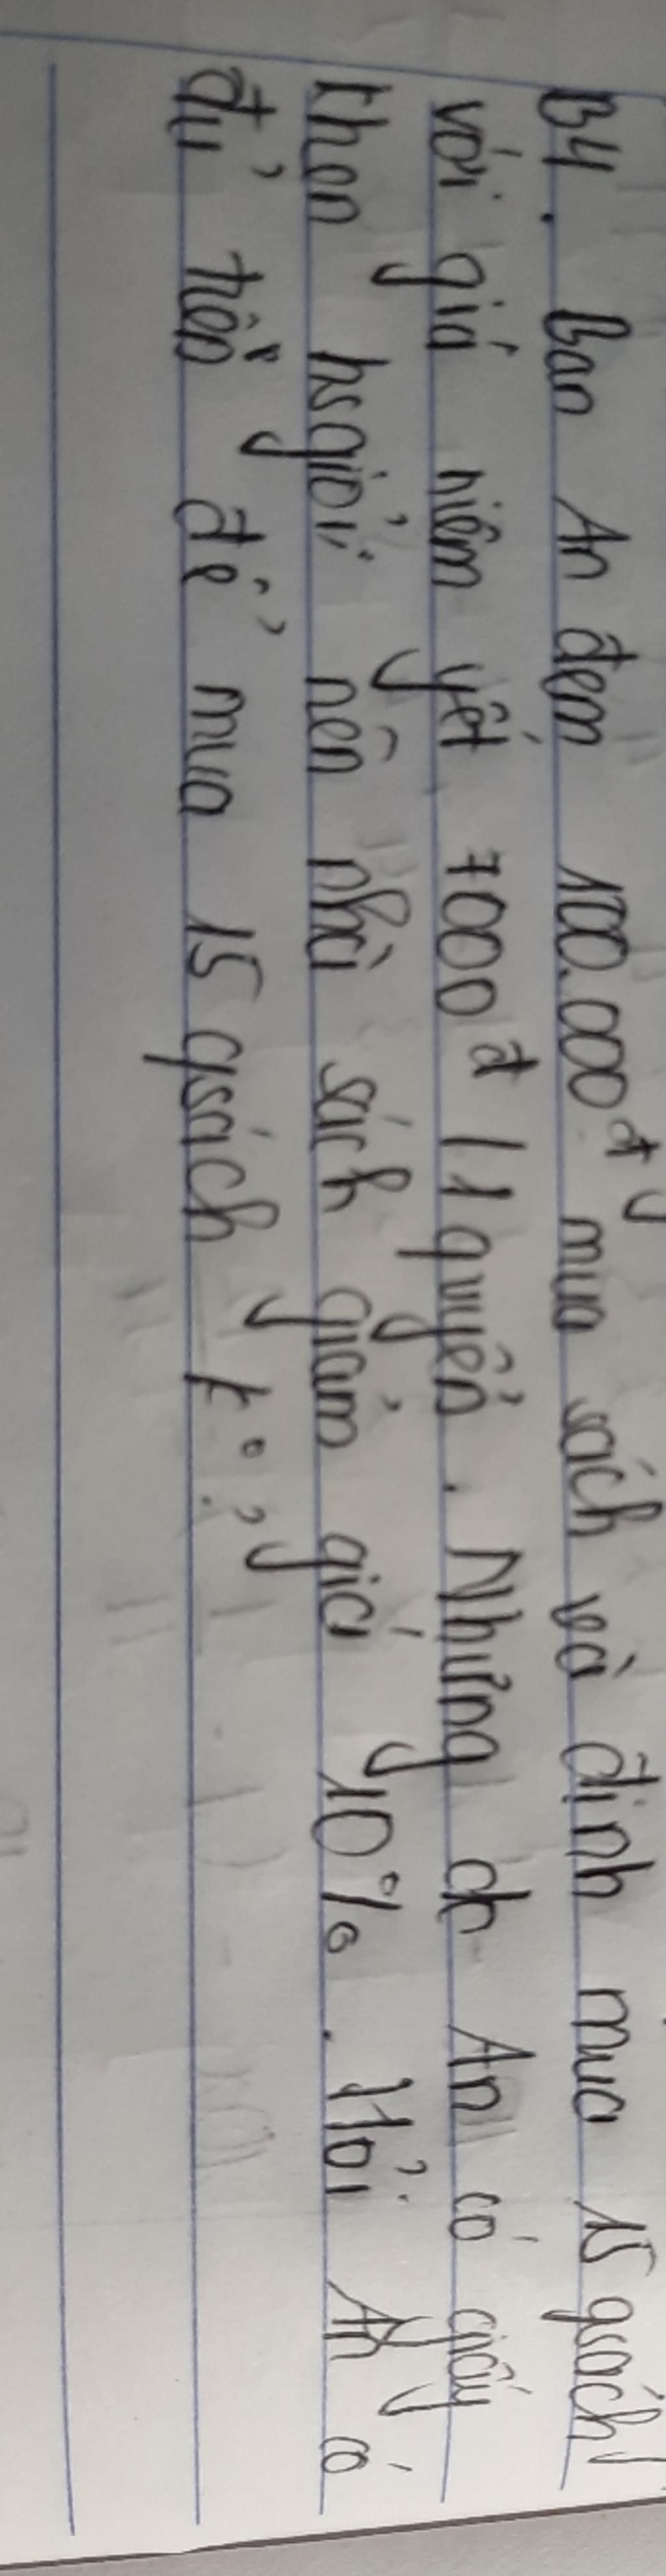 B4. Bạn An đem 100.000đ mua sách và định mua 15 qsách
với giá niêm yết 7000đ / 1 quyển. Nhưng do An có giấy
khen hsgiỏi nên nhà sách giảm giá 10%. Hỏi An có
đủ tiền để mua 15 qsách ko?